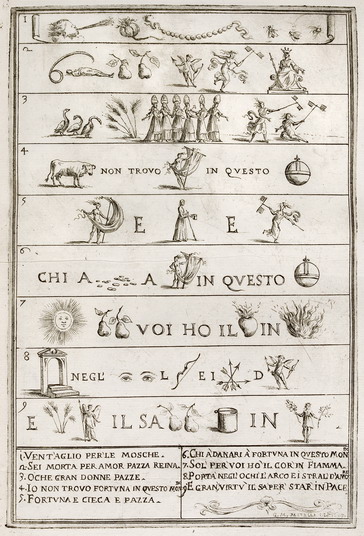 1
2
3
4 NON TROVO IN QVESTO
5 E E
6 CHI A A IN QVESTO
7 VOI HO IL IN
8 NEGL' L EI D
9 E IL SA IN
1. VENTAGLIO PER LE MOSCHE.
2. SEI MORTA PER AMOR PAZZA REINA.
3. OCHE GRAN DONNE PAZZE.
4. IO NON TROVO FORTUNA IN QUESTO MON DO
5. FORTUNA E CIECA E PAZZA.
6. CHI A DANARI À FORTUNA IN QUESTO MON DO
7. SOL' PER VOI HO' IL COR' IN FIAMMA.
8. PORTA NEGL' OCHI L'ARCO E I STRALI D'AMO RE
9. E GRAN VIRTU' IL SAPER' STAR' IN PACE